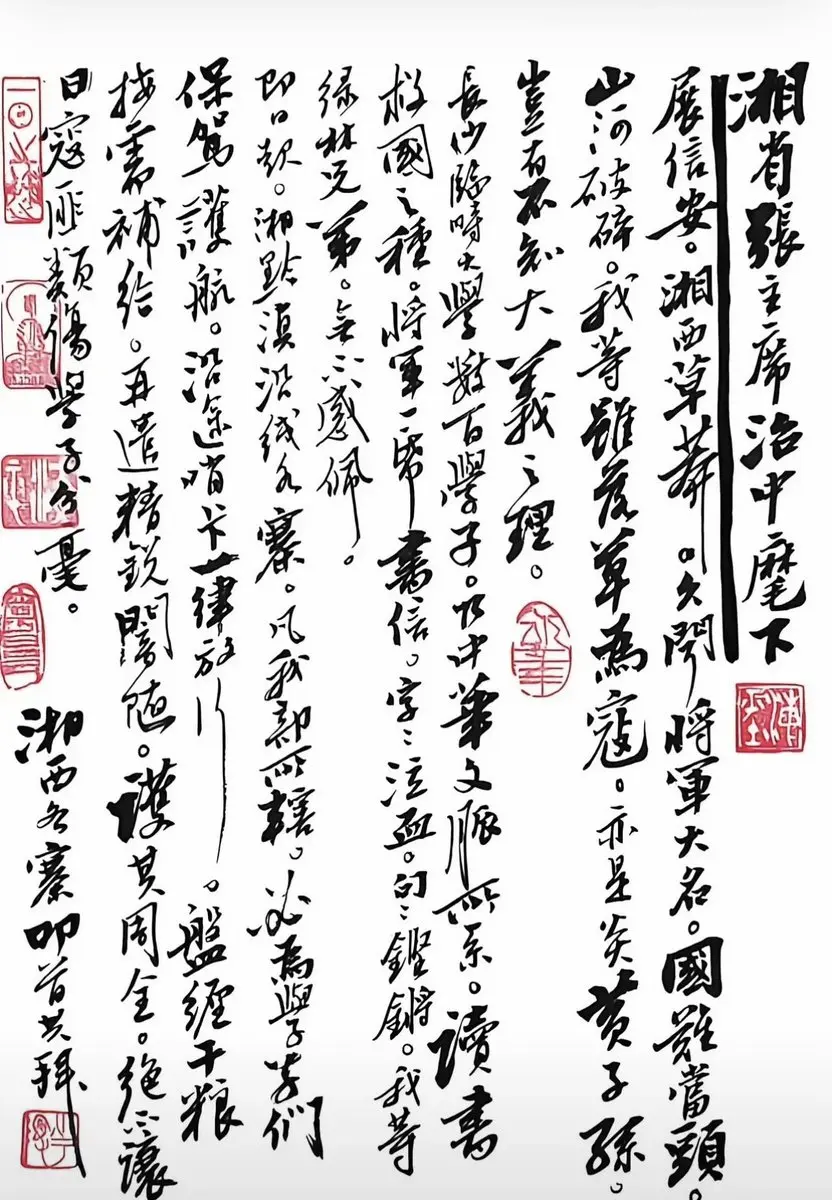 湘省張主席治中麾下
展信安。湘西草莽。久聞將軍大名。國難當頭。
山河破碎。我等雖落草為寇。亦是炎黃子孫。
豈有不知大義之理。
長沙臨時大學數百學子。乃中華文脈所系。讀書
救國之種。將軍一帋書信。字字泣血。句句鏗鏘。我等
绿林兄弟。無不感佩。
即日起。湘黔滇沿线各寨。凡我部所轄。必為學子学們
保駕護航。沿途哨卡一律放行。盤纏干粮
按需補给。再遣精銳闇随。護其周全。绝不讓
日寇匪類傷學子分毫。
湘西各寨叩首共拜